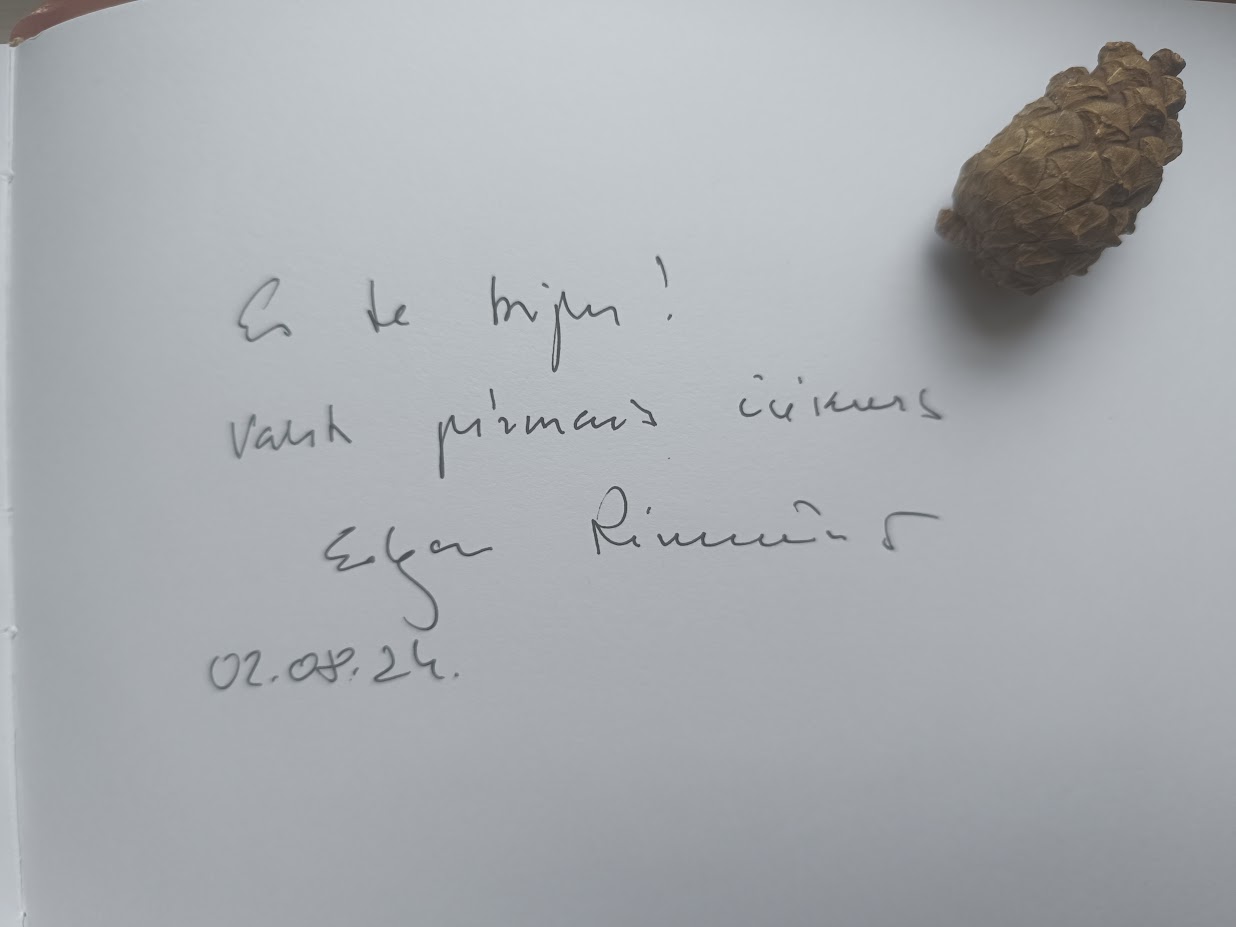 Es te biju!
Valsts pirmais čiekurs
Edgars Rinkēvičs
02.08.24.